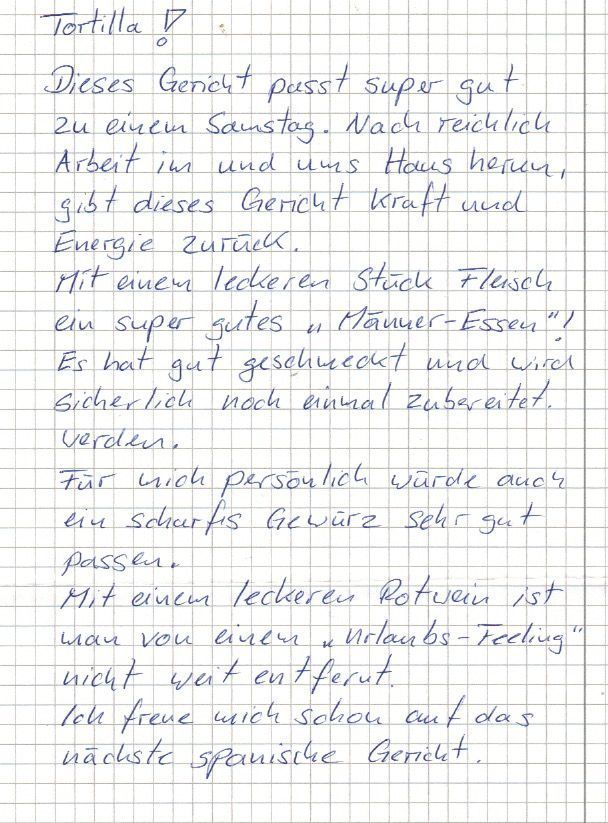 Tortilla !
Dieses Gericht passt super gut
zu einem Samstag. Nach reichlich
Arbeit im und ums Haus herum,
gibt dieses Gericht Kraft und
Energie zurück.
Mit einem leckeren Stück Fleisch
ein super gutes „Männer-Essen"!
Es hat gut geschmeckt und wird
sicherlich noch einmal zubereitet.
werden.
Für mich persönlich würde auch
ein scharfes Gewürz sehr gut
passen.
Mit einem leckeren Rotwein ist
man von einem „Urlaubs-Feeling"
nicht weit entfernt.
Ich freue mich schon auf das
nächste spanische Gericht.